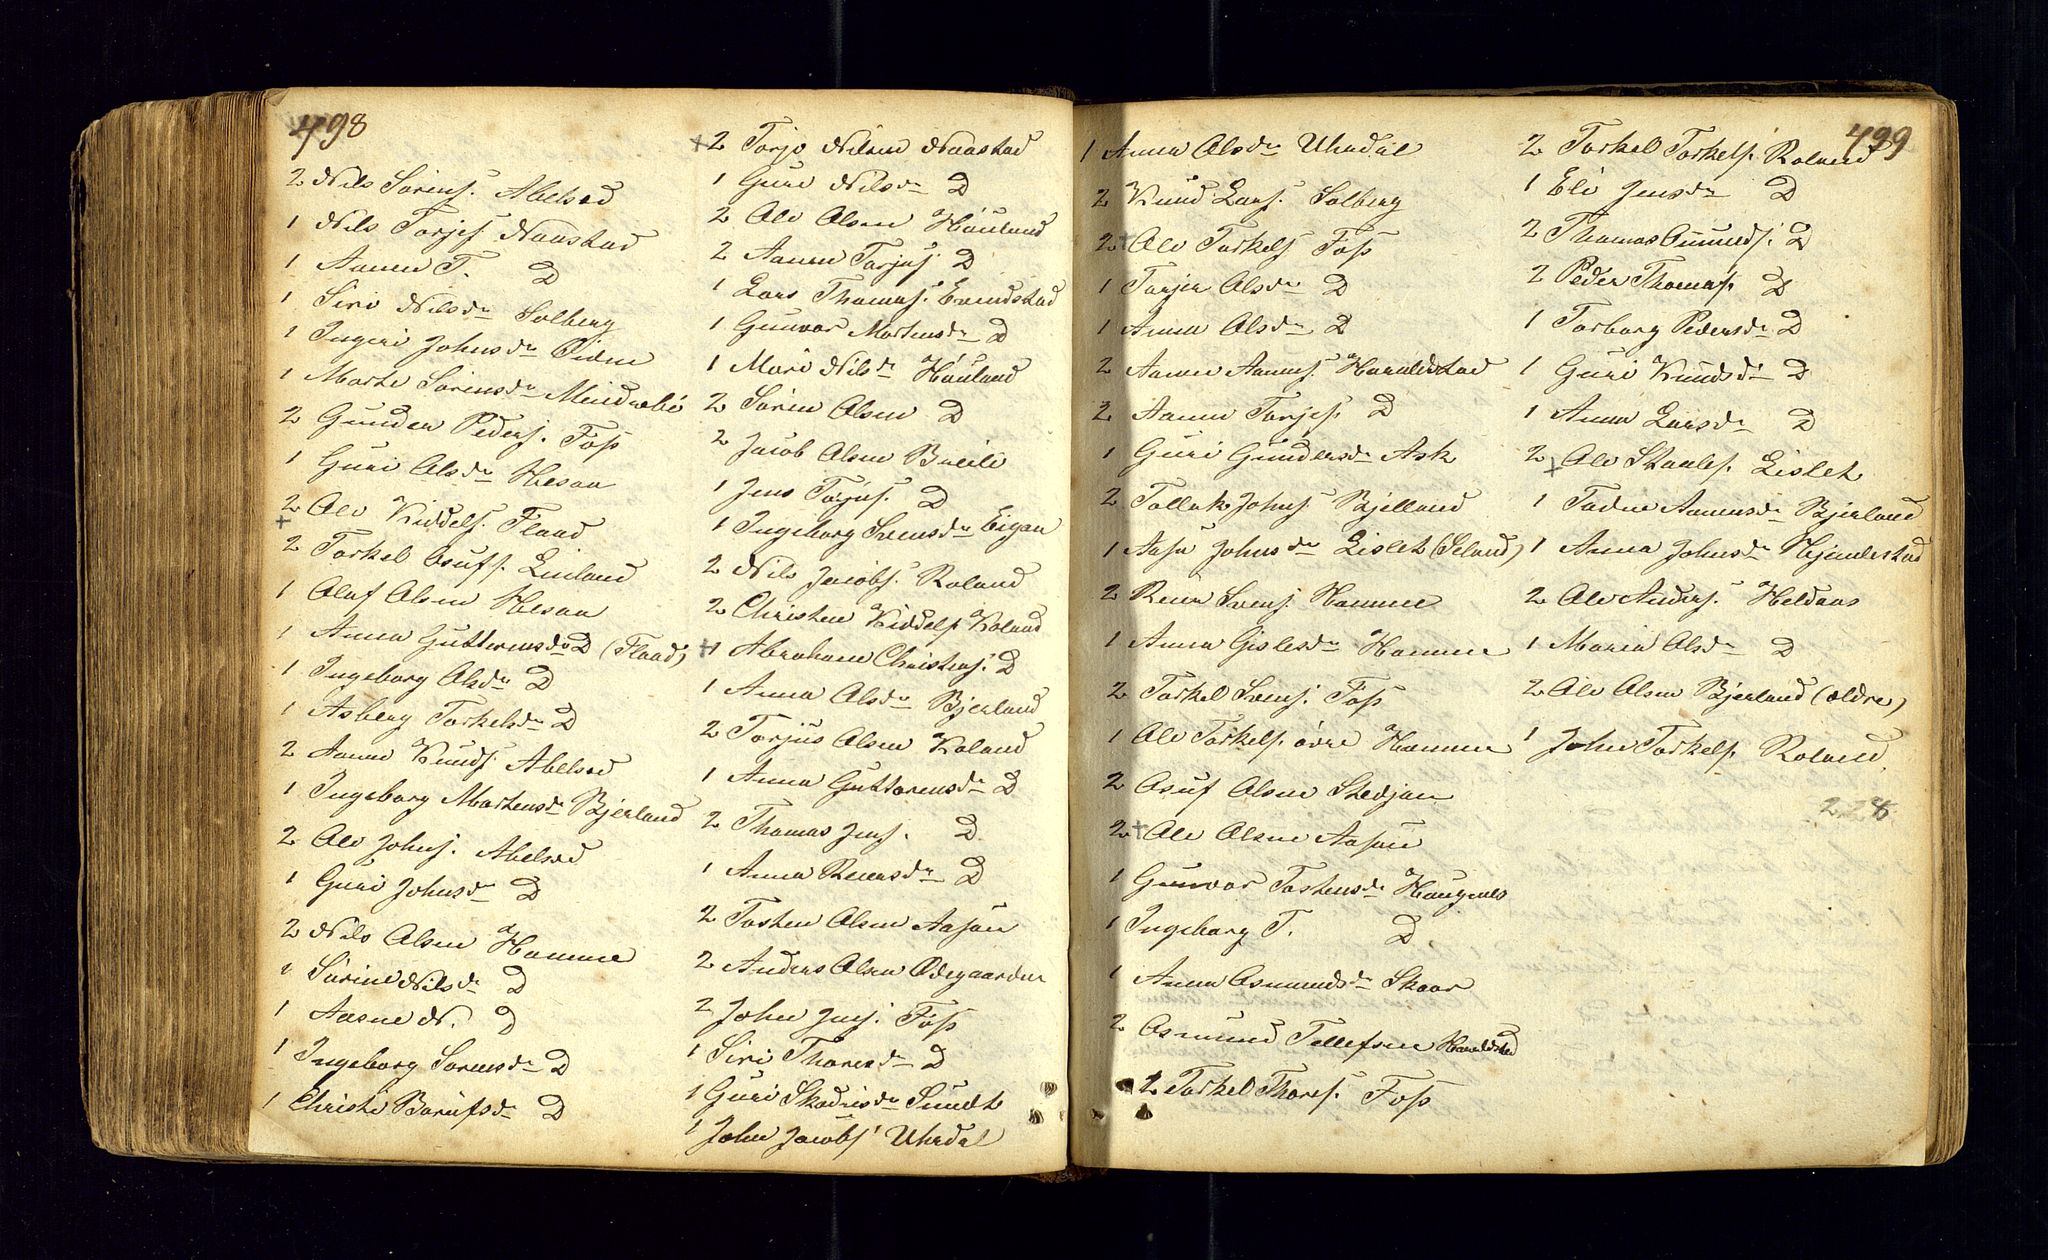 498
2 Nils Sörens. Abelsed
1 Nils Torjes. Naastad
1 Aanen T. D
1 Siri Nilsdr Solberg
1 Ingeri Johnsdr Eidem
1 Marte Sörensdr Meindrebö
2 Gunder Peders. Foss
1 Guri Olsdr Hesaa
2 Ole Kiddels. Flaad
2 Torkel Osufs. Einland
1 Oluf Olsen Hesaa
1 Anna Guttormsdr D (Flaad)
1 Ingeborg Olsdr D
1 Asberg Torkelsdr D
2 Aanen Knuds. Abelsed
1 Ingeborg Mortensdr Bjerland
2 Ole Johns. Abelsed
1 Guri Johnsdr D
2 Nils Olsen Homme
1 Sörine Nilsdr D
1 Aasne N. D
1 Ingeborg Sörensdr D
1 Christi Borufsdr D
+ 2 Torjo Nilsen Naastad
1 Guri Nilsdr D
2 Ole Olsen Houland
2 Aanen Torjus. D
1 Lars Thomas. Evindstad
1 Gunvor Mortensdr D
1 Mari Nilsdr Houland
2 Sören Olsen D
2 Jacob Olsen Breili
1 Jens Torjus. D
1 Ingeborg Svensdr Eigan
2 Nils Jacobs. Roland
2 Christen Kiddels. Roland
+ 1 Abraham Christens. D
1 Anna Olsdr Bjerland
2 Torjus Olsen Roland
1 Anna Guttormsdr D
2 Thomas Jens. D
1 Anna Reiersdr D
2 Tosten Olsen Aasen
2 Anders Olsen Odegaarden
2 John Jens. Foss
1 Siri Thoresdr D
1 Guri Skadrisdr Sundt
1 John Jacobs. Uhrdal
499
1 Anna Olsdr Uhrdal
2 Knud Lars. Solberg
2 + Ole Torkels. Foss
1 Torjer Olsdr D
1 Anna Olsdr D
2 Aanen Aanens. Haraldstad
2 Aanen Torjes. D
1 Guri Gundersdr Ask
2 Tollak Johns. Bjelland
1 Aase Johnsdr Lislet (Seland)
2 Reier Svens. Homme
1 Anna Gislesdr Homme
2 Torkel Svens. Foss
1 Ole Torkels. övre Homme
2 Osuf Olsen Stedjan
2 + Ole Olsen Aasen
1 Gunvor Tostensdr Hougenes
1 Ingeborg T. D
1 Anna Osmundsdr Skaar
2 Osmund Tellefsen Haraldstad
2 Torkel Thores. Foss
2 Torkel Torkels. Roland
1 Eli Jensdr D
2 Thomas Omunds. D
2 Peder Thomas. D
1 Torborg Pedersdr D
1 Guri Knudsdr D
1 Anna Larsdr D
2 + Ole Staales. Lislet
1 Todne Aanensdr Bjerland
1 Anna Johnsdr Hjemlestad
2 Ole Anders. Heldaas
1 Maria Olsdr D
2 Ole Olsen Bjerland (ældre)
1 John Torkels. Roland
228